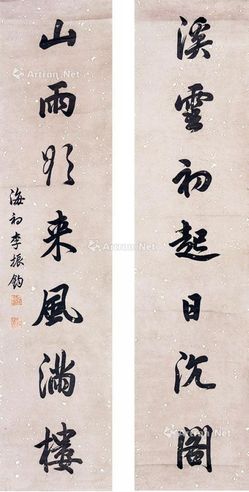 溪雲初起日沉閣
山雨欲来風滿樓
海初李振鈞
Artron.Net